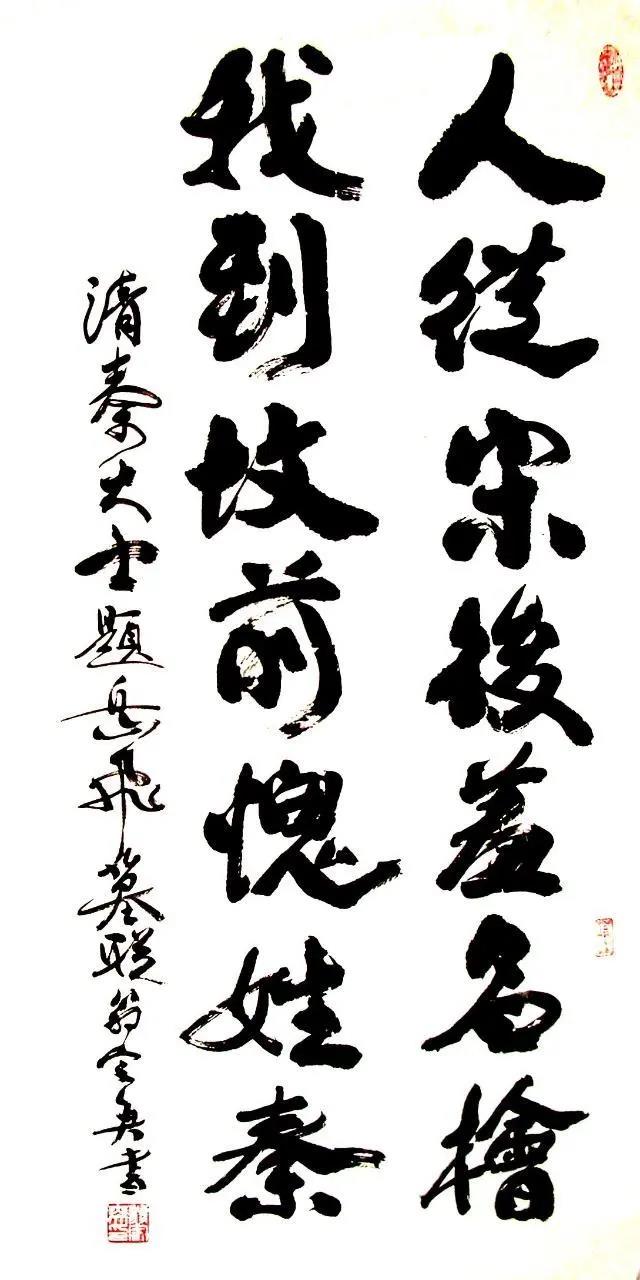 人從宋後羞名檜
我到坟前愧姓秦
清秦大士題岳飛墓聯翁
書